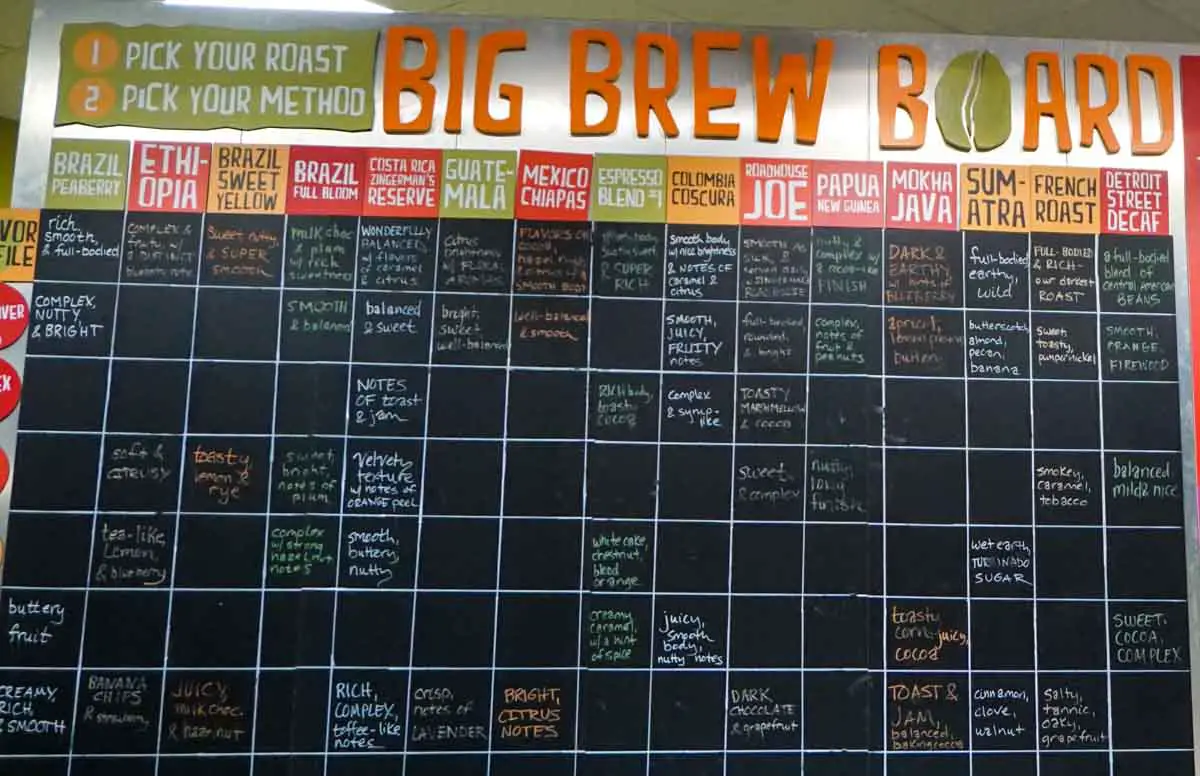 1 PICK YOUR ROAST
2 PICK YOUR METHOD
BIG BREW BOARD
BRAZIL
PEABERRY
ETHI-
OPIA
BRAZIL
SWEET
YELLOW
BRAZIL
FULL BLOOM
COSTA RICA
ZINGERMAN'S
RESERVE
GUATE-
MALA
MEXICO
CHIAPAS
ESPRESSO
BLEND #1
COLOMBIA
COSCURA
ROADHOUSE
JOE
PAPUA
NEW GUINEA
MOKHA
JAVA
SUM-
ATRA
FRENCH
ROAST
DETROIT
STREET
DECAF
VOR
FILE
rich,
smooth,
& full-bodied
COMPLEX &
fruity w/
A DISTINCT
Sweet nutty
& SUPER
SMOOTH
milk choc
& plum
w/ rich
sweetness
WONDERFULLY
BALANCED
w/ flavors
of caramel
& citrus
Citrus
brightness
w/ FLORAL
FLAVORS OF
SMOOTH BODY
& SUPER
RICH
smooth body
w/ nice brightness
& NOTES OF
caramel &
citrus
SMOOTH AS
nutty &
complex w/
FINISH
DARK &
EARTHY
w/ hints of
BLUEBERRY
full-bodied
earthy,
wild
FULL-BODIED
& RICH-
our darkest
ROAST
a full-bodied
blend of
central american
BEANS
VER
COMPLEX,
NUTTY,
& BRIGHT
SMOOTH
& balanced
balanced
& sweet
bright,
sweet
well-balanced
well-balanced
& smooth
SMOOTH,
JUICY,
FRUITY
notes
full-bodied,
rounded,
& bright
complex,
notes of
fruit &
peanuts
apricot,
butterscotch
almond,
pecan,
banana
sweet,
toasty,
pumpernickel
SMOOTH,
ORANGE,
FIREWOOD
EX
NOTES
OF toast
& jam
RICH body,
toast,
cocoa
complex
& syrup-
like
TOASTY
MARSHMELLOW
& COCOA
soft &
CITRUSY
toasty,
lemon &
rye
sweet,
bright,
notes of
plum
velvety
texture
w/ notes of
ORANGE peel
sweet,
& complex
nutty,
long
finish
smokey,
caramel,
tobacco
balanced
mild & nice
tea-like,
lemon,
& blueberry
complex
w/ strong
hazelnut
notes
smooth,
buttery,
nutty
white cake,
chestnut,
blood
orange
wet earth,
TURBINADO
SUGAR
buttery
fruit
creamy
caramel,
w/ a hint
of spice
juicy,
smooth
body,
nutty notes
toasty
corn, juicy,
cocoa
SWEET,
COCOA,
COMPLEX
CREAMY,
RICH
& SMOOTH
BANANA
CHIPS
& strawberry
JUICY,
milk choc.
& hazelnut
RICH,
COMPLEX,
toffee-like
notes
crisp,
notes of
LAVENDER
BRIGHT,
CITRUS
NOTES
DARK
CHOCOLATE
& grapefruit
TOAST &
JAM,
balanced,
cinnamon,
clove,
walnut
Salty,
tannic,
oaky,
grapefruit